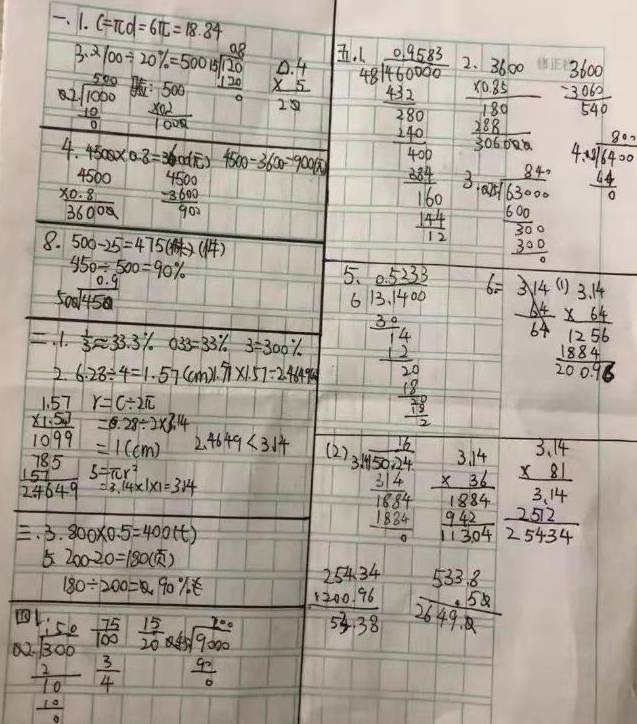 一、1. C=πd=6π=18.84
3. 2100÷20%=500
0.8
15√120
120
0
0.4
× 5
20
500
0.2√1000
10
0
验: 500
×0.2
1000
4. 4500×0.8=3600(元) 4500-3600=900(元)
4500
×0.8
36000
4500
-3600
900
8. 500-25=475 (件)
450÷500=90%
0.9
500√450
二、1. 1/3≈33.3% 0.33=33% 3=300%
2. 6.28÷4=1.57(cm) 1.57×1.57=2.4649
1.57
×1.57
1099
785
157
2.4649
r=C÷2π
=6.28÷2×3.14
=1(cm)
S=πr²
=3.14×1×1=3.14
2.4649<3.14
三、3. 800×0.5=400(t)
5. 200-20=180(页)
180÷200=0.90%
四、1.
150
0.2√300
2
10
10
0
75
100
3
4
15
20
200
0.45√9000
90
0
五、1.
0.9583
48√460000
432
280
240
400
384
160
144
12
2. 3600
×0.85
180
288
306000
修正栏
3600
-3060
540
800
√6400
64
0
3.
840
0.75√63000
600
300
300
0
5. 0.5233
6√3.1400
30
14
12
20
18
20
18
2
6. 3.14
64
64
(1) 3.14
× 64
1256
1884
200.96
(2)
16
3.14√50.24
314
1884
1884
0
3.14
× 36
1884
942
11304
3.14
× 81
3.14
2512
25434
254.34
-200.96
53.38
533.8
50
2649.0